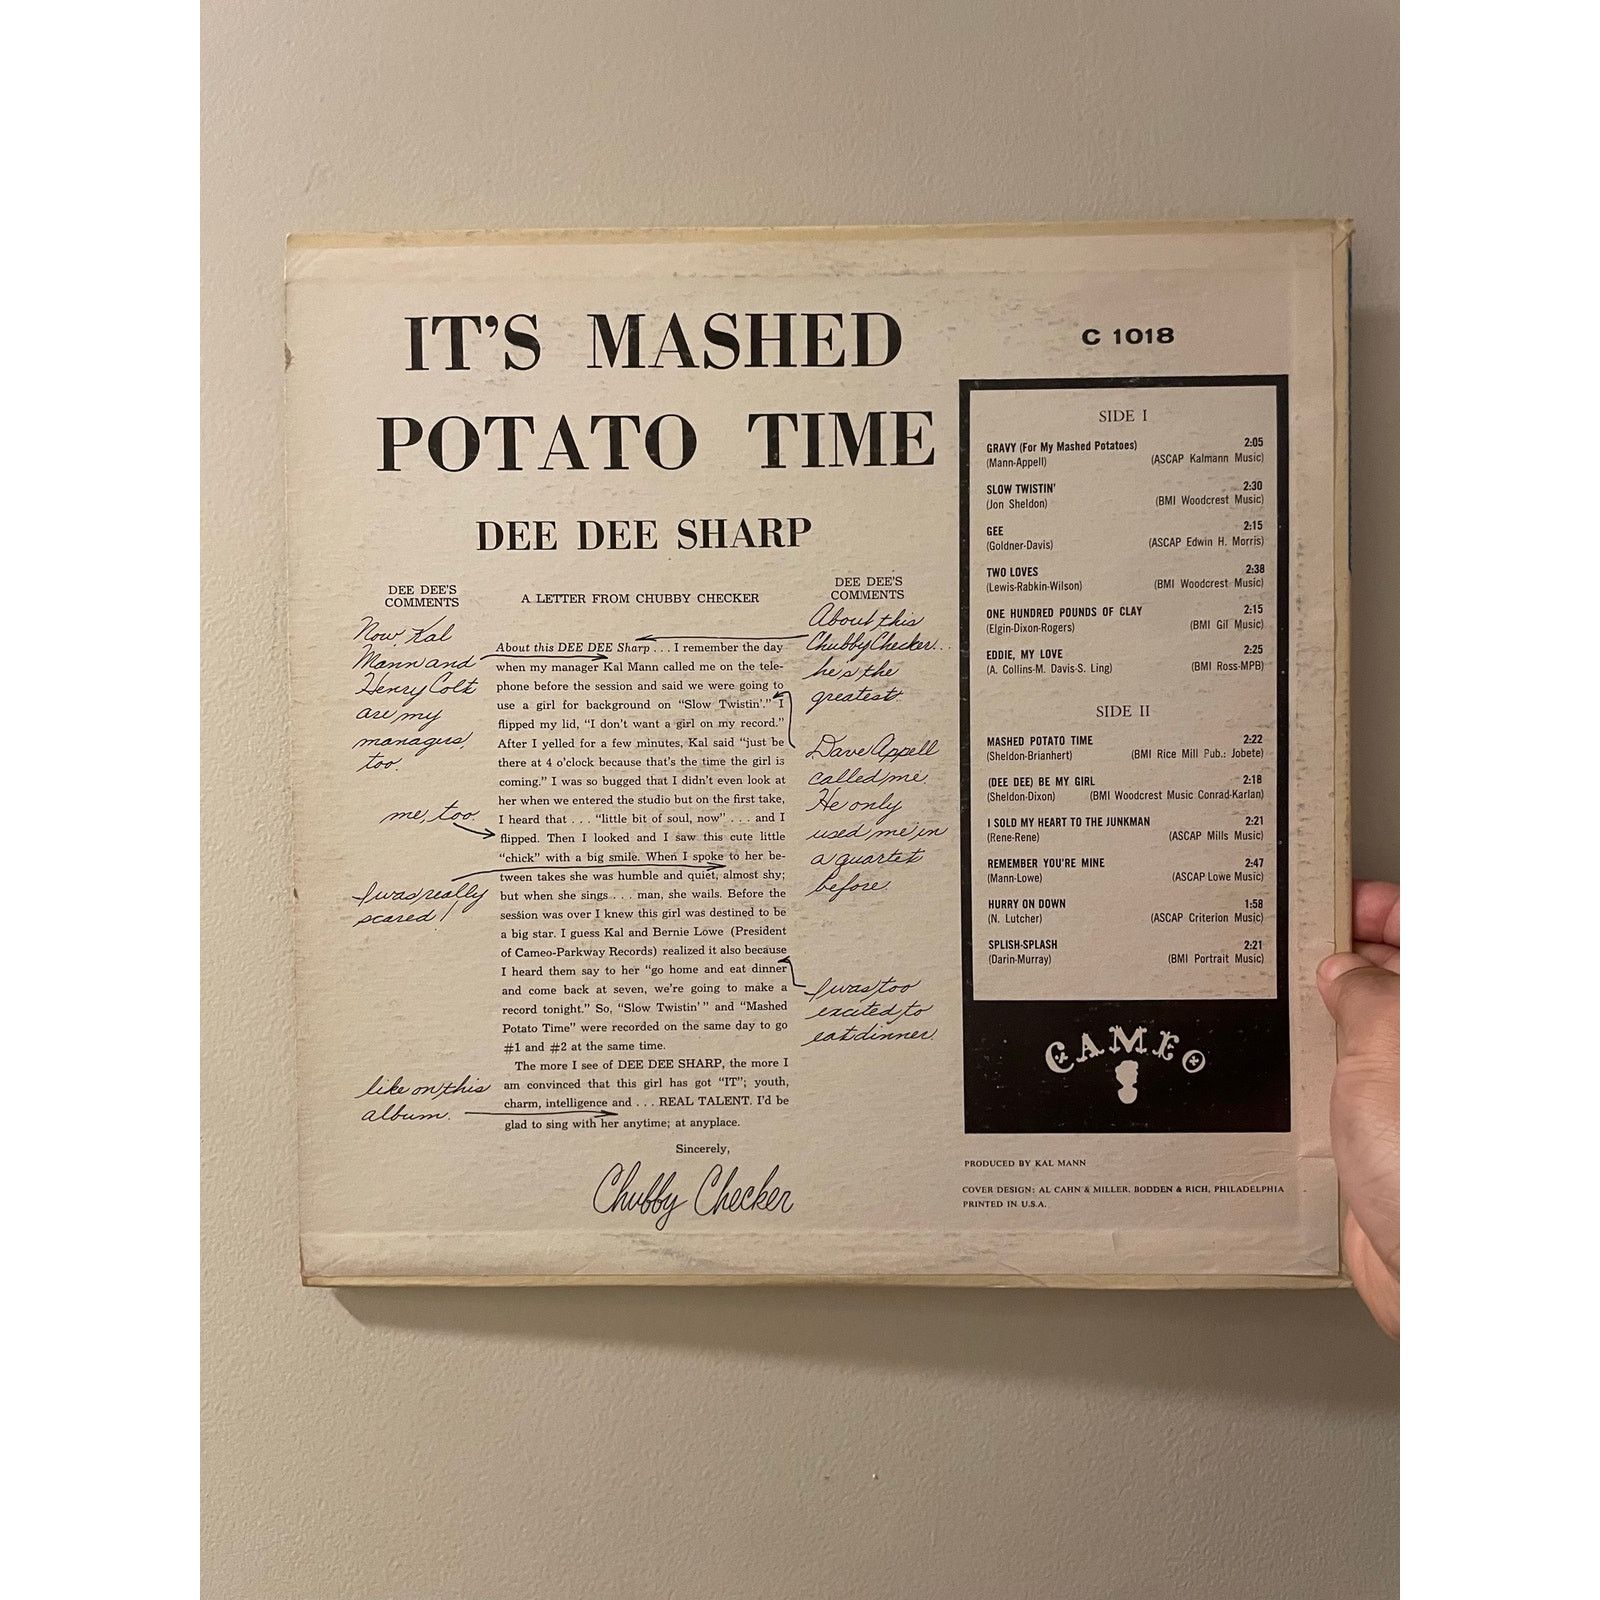 IT'S MASHED
POTATO TIME
DEE DEE SHARP
DEE DEE'S
COMMENTS
Now, Kal
Mann and
Henry Colt
are my
managers,
too.
me, too.
I was really
scared!
like on this
album.
A LETTER FROM CHUBBY CHECKER
About this DEE DEE Sharp . . . I remember the day
when my manager Kal Mann called me on the tele-
phone before the session and said we were going to
use a girl for background on "Slow Twistin'." I
flipped my lid, "I don't want a girl on my record."
After I yelled for a few minutes, Kal said "just be
there at 4 o'clock because that's the time the girl is
coming." I was so bugged that I didn't even look at
her when we entered the studio but on the first take,
I heard that . . . "little bit of soul, now" . . . and I
flipped. Then I looked and I saw this cute little
"chick" with a big smile. When I spoke to her be-
tween takes she was humble and quiet, almost shy;
but when she sings . . . man, she wails. Before the
session was over I knew this girl was destined to be
a big star. I guess Kal and Bernie Lowe (President
of Cameo-Parkway Records) realized it also because
I heard them say to her "go home and eat dinner
and come back at seven, we're going to make a
record tonight." So, "Slow Twistin'" and "Mashed
Potato Time" were recorded on the same day to go
#1 and #2 at the same time.
The more I see of DEE DEE SHARP, the more I
am convinced that this girl has got "IT"; youth,
charm, intelligence and . . . REAL TALENT. I'd be
glad to sing with her anytime; at anyplace.
Sincerely,
Chubby Checker
DEE DEE'S
COMMENTS
About this
Chubby Checker...
he's the
greatest.
Dave Appell
called me.
He only
used me in
a quartet
before.
I was too
excited to
eat dinner.
C 1018
SIDE I
GRAVY (For My Mashed Potatoes) 2:05
(Mann-Appell) (ASCAP Kalmann Music)
SLOW TWISTIN' 2:30
(Jon Sheldon) (BMI Woodcrest Music)
GEE 2:15
(Goldner-Davis) (ASCAP Edwin H. Morris)
TWO LOVES 2:38
(Lewis-Rabkin-Wilson) (BMI Woodcrest Music)
ONE HUNDRED POUNDS OF CLAY 2:15
(Elgin-Dixon-Rogers) (BMI Gil Music)
EDDIE, MY LOVE 2:25
(A. Collins-M. Davis-S. Ling) (BMI Ross-MPB)
SIDE II
MASHED POTATO TIME 2:22
(Sheldon-Brianhert) (BMI Rice Mill Pub.: Jobete)
(DEE DEE) BE MY GIRL 2:18
(Sheldon-Dixon) (BMI Woodcrest Music Conrad-Karlan)
I SOLD MY HEART TO THE JUNKMAN 2:21
(Rene-Rene) (ASCAP Mills Music)
REMEMBER YOU'RE MINE 2:47
(Mann-Lowe) (ASCAP Lowe Music)
HURRY ON DOWN 1:58
(N. Lutcher) (ASCAP Criterion Music)
SPLISH-SPLASH 2:21
(Darin-Murray) (BMI Portrait Music)
CAMEO
PRODUCED BY KAL MANN
COVER DESIGN: AL CAHN & MILLER, BODDEN & RICH, PHILADELPHIA
PRINTED IN U.S.A.